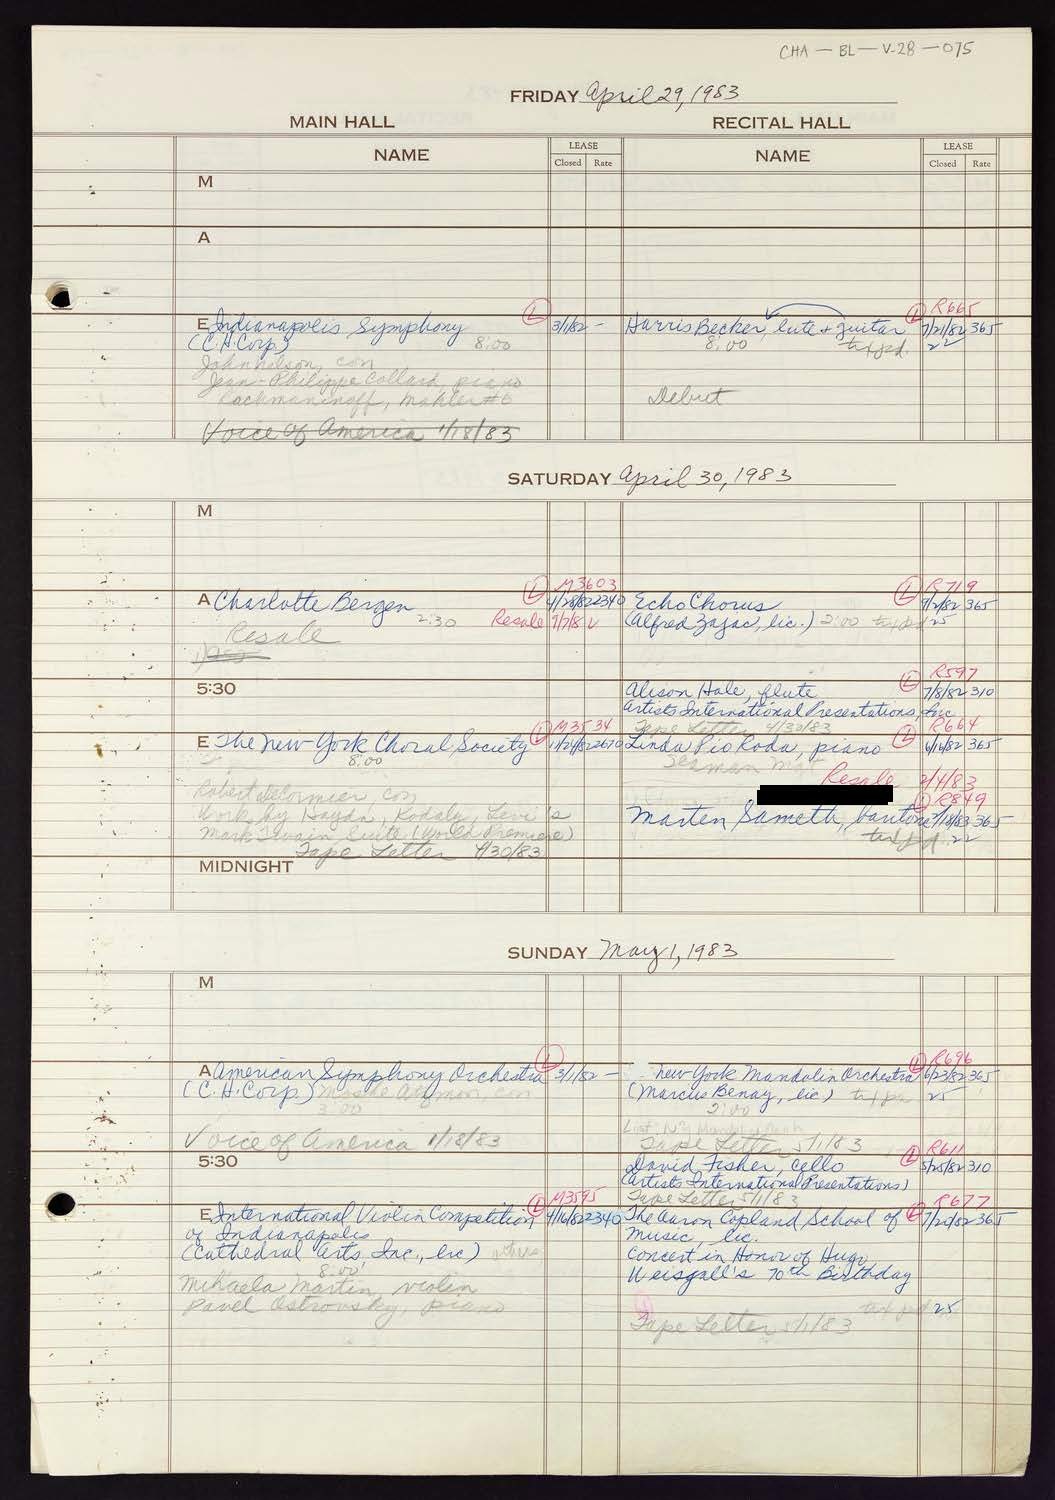 CHA — BL — V-28 — 075
FRIDAY April 29, 1983
MAIN HALL
RECITAL HALL
NAME
LEASE
Closed Rate
NAME
LEASE
Closed Rate
M
A
E Indianapolis Symphony (L) 3/1/82 –
(C.H. Corp) 8:00
John Nelson, con
Jean-Philippe Collard, piano
Rachmaninoff, Mahler #6
Voice of America 1/18/83
(L) R665
Harris Becker, lute + guitar 7/21/82 365
8:00 tax pd. 22
Debut
SATURDAY April 30, 1983
M
(L) M3603
A Charlotte Bergen 4/28/82 2340
2:30 Resale 7/7/82
Resale
(L) R719
Echo Chorus 9/2/82 365
(Alfred Zajac, lic.) 2:00 tax pd 25
5:30
(L) R597
Alison Hale, flute 7/8/82 310
Artists International Presentations, Inc
Tape Letter 4/30/83
(L) M3534
E The New York Choral Society 2670
8:00
Robert DeCormier, con
Work by Haydn, Kodaly, Levi's
Mark Twain Suite (World Premiere)
Tape Letter 4/30/83
(L) R664
Linda Pio Roda, piano 6/16/82 365
Seaman Mgt
Resale 2/4/83
(L) R849
Marten Sameth, baritone 365
tax pd. 22
MIDNIGHT
SUNDAY May 1, 1983
M
A American Symphony Orchestra (L) 3/1/82 –
(C.H. Corp) Moshe Atzmon, con
3:00
Voice of America 1/18/83
(L) R696
New York Mandolin Orchestra 6/23/82 365
(Marcus Benay, lic) tax pd 25
2:00
Tape Letter 5/1/83
5:30
(L) R611
David Fisher, cello 5/25/82 310
(Artists International Presentations)
Tape Letter 5/1/83
(L) M3595
E International Violin Competition 4/16/82 2340
of Indianapolis
(Cathedral Arts, Inc., lic)
8:00
Mihaela Martin, violin
Pavel Ostrovsky, piano
(L) R677
The Aaron Copland School of 7/22/82 365
Music, lic.
Concert in Honor of Hugo
Weisgall's 70th Birthday
tax pd 25
Tape Letter 5/1/83